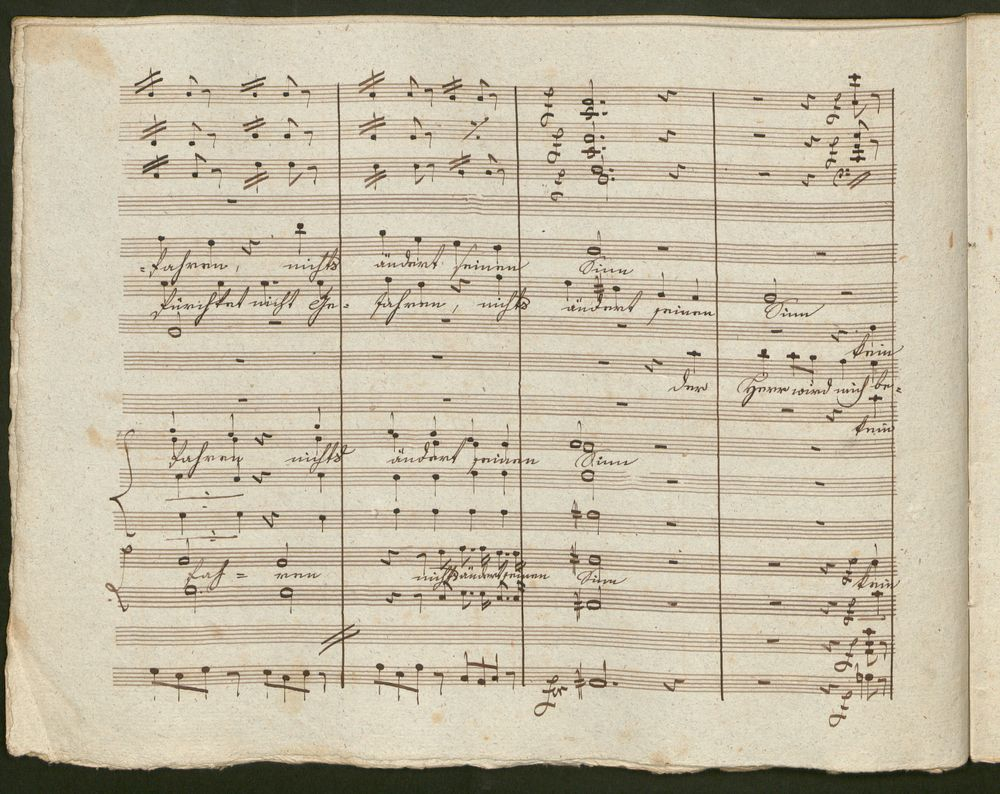 -fahren, nichts ändert seinen Sinn
fürchtet nicht Ge- fahren, nichts ändert seinen Sinn
kein
der Herr wird mich be-
kein
fahren nichts ändert seinen Sinn
fah - ren nichts ändert seinen Sinn kein